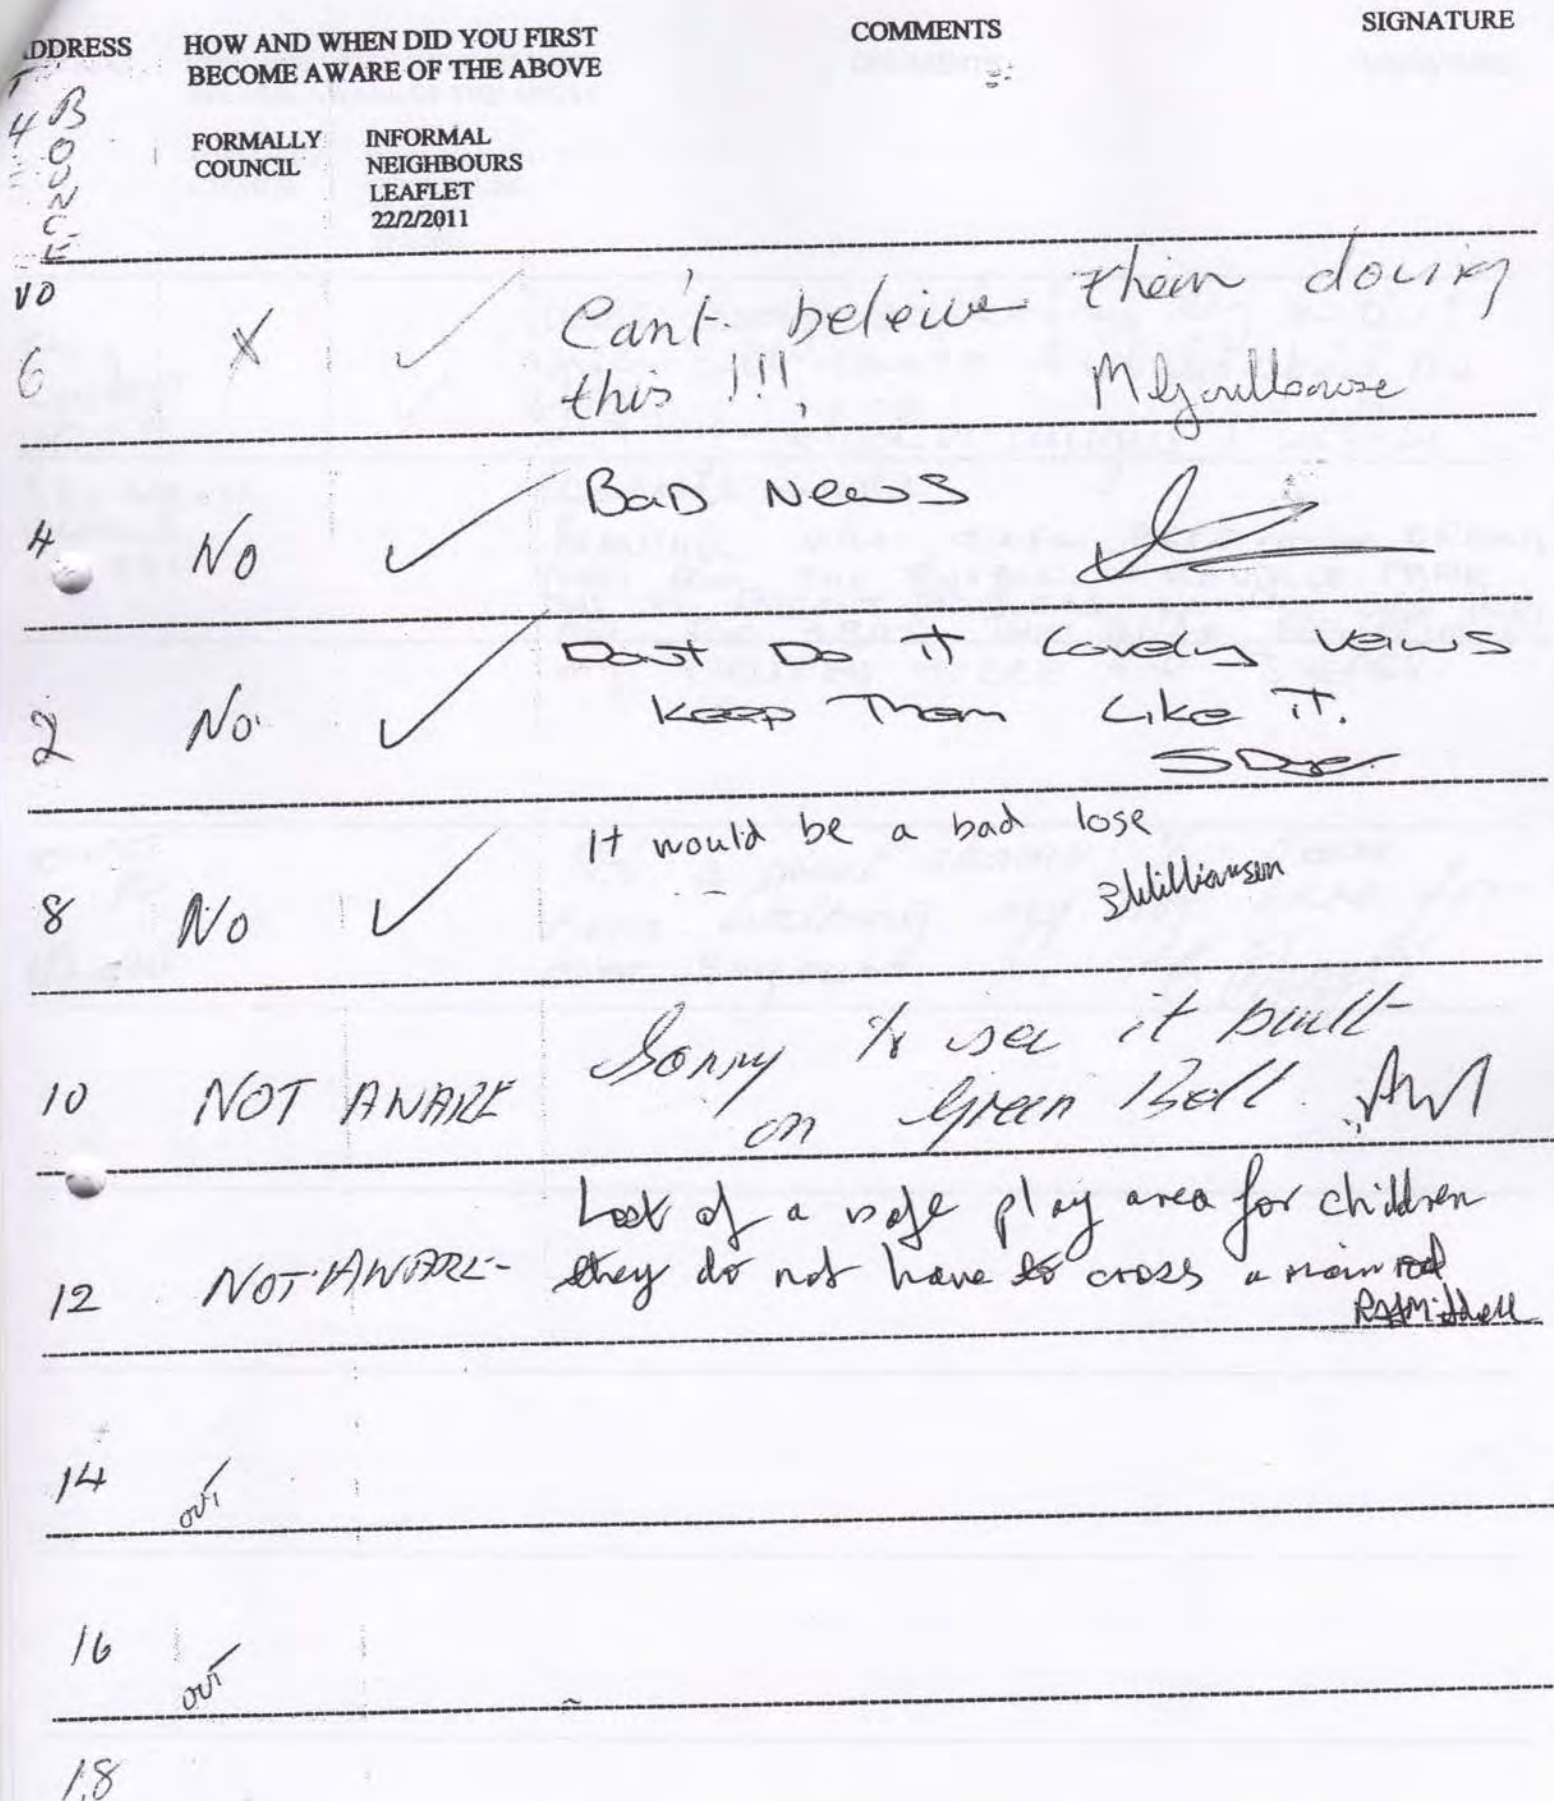 DDRESS HOW AND WHEN DID YOU FIRST COMMENTS SIGNATURE
BECOME AWARE OF THE ABOVE
FORMALLY INFORMAL
COUNCIL NEIGHBOURS
LEAFLET
22/2/2011
4
B
O
U
N
C
E
NO
6 X ✓ Can't beleive them doing
this !!!
4 No ✓ BaD News
2 No ✓ Dont Do iT Lovely veiws
Keep Them Like iT.
S Dye
8 No ✓ It would be a bad lose
Williamson
10 NOT AWARE Sorry to see it built
on Green Belt.
12 NOT AWARE Lost of a safe play area for children
they do not have to cross a main rod
Mitchell
14 out
16 out
18